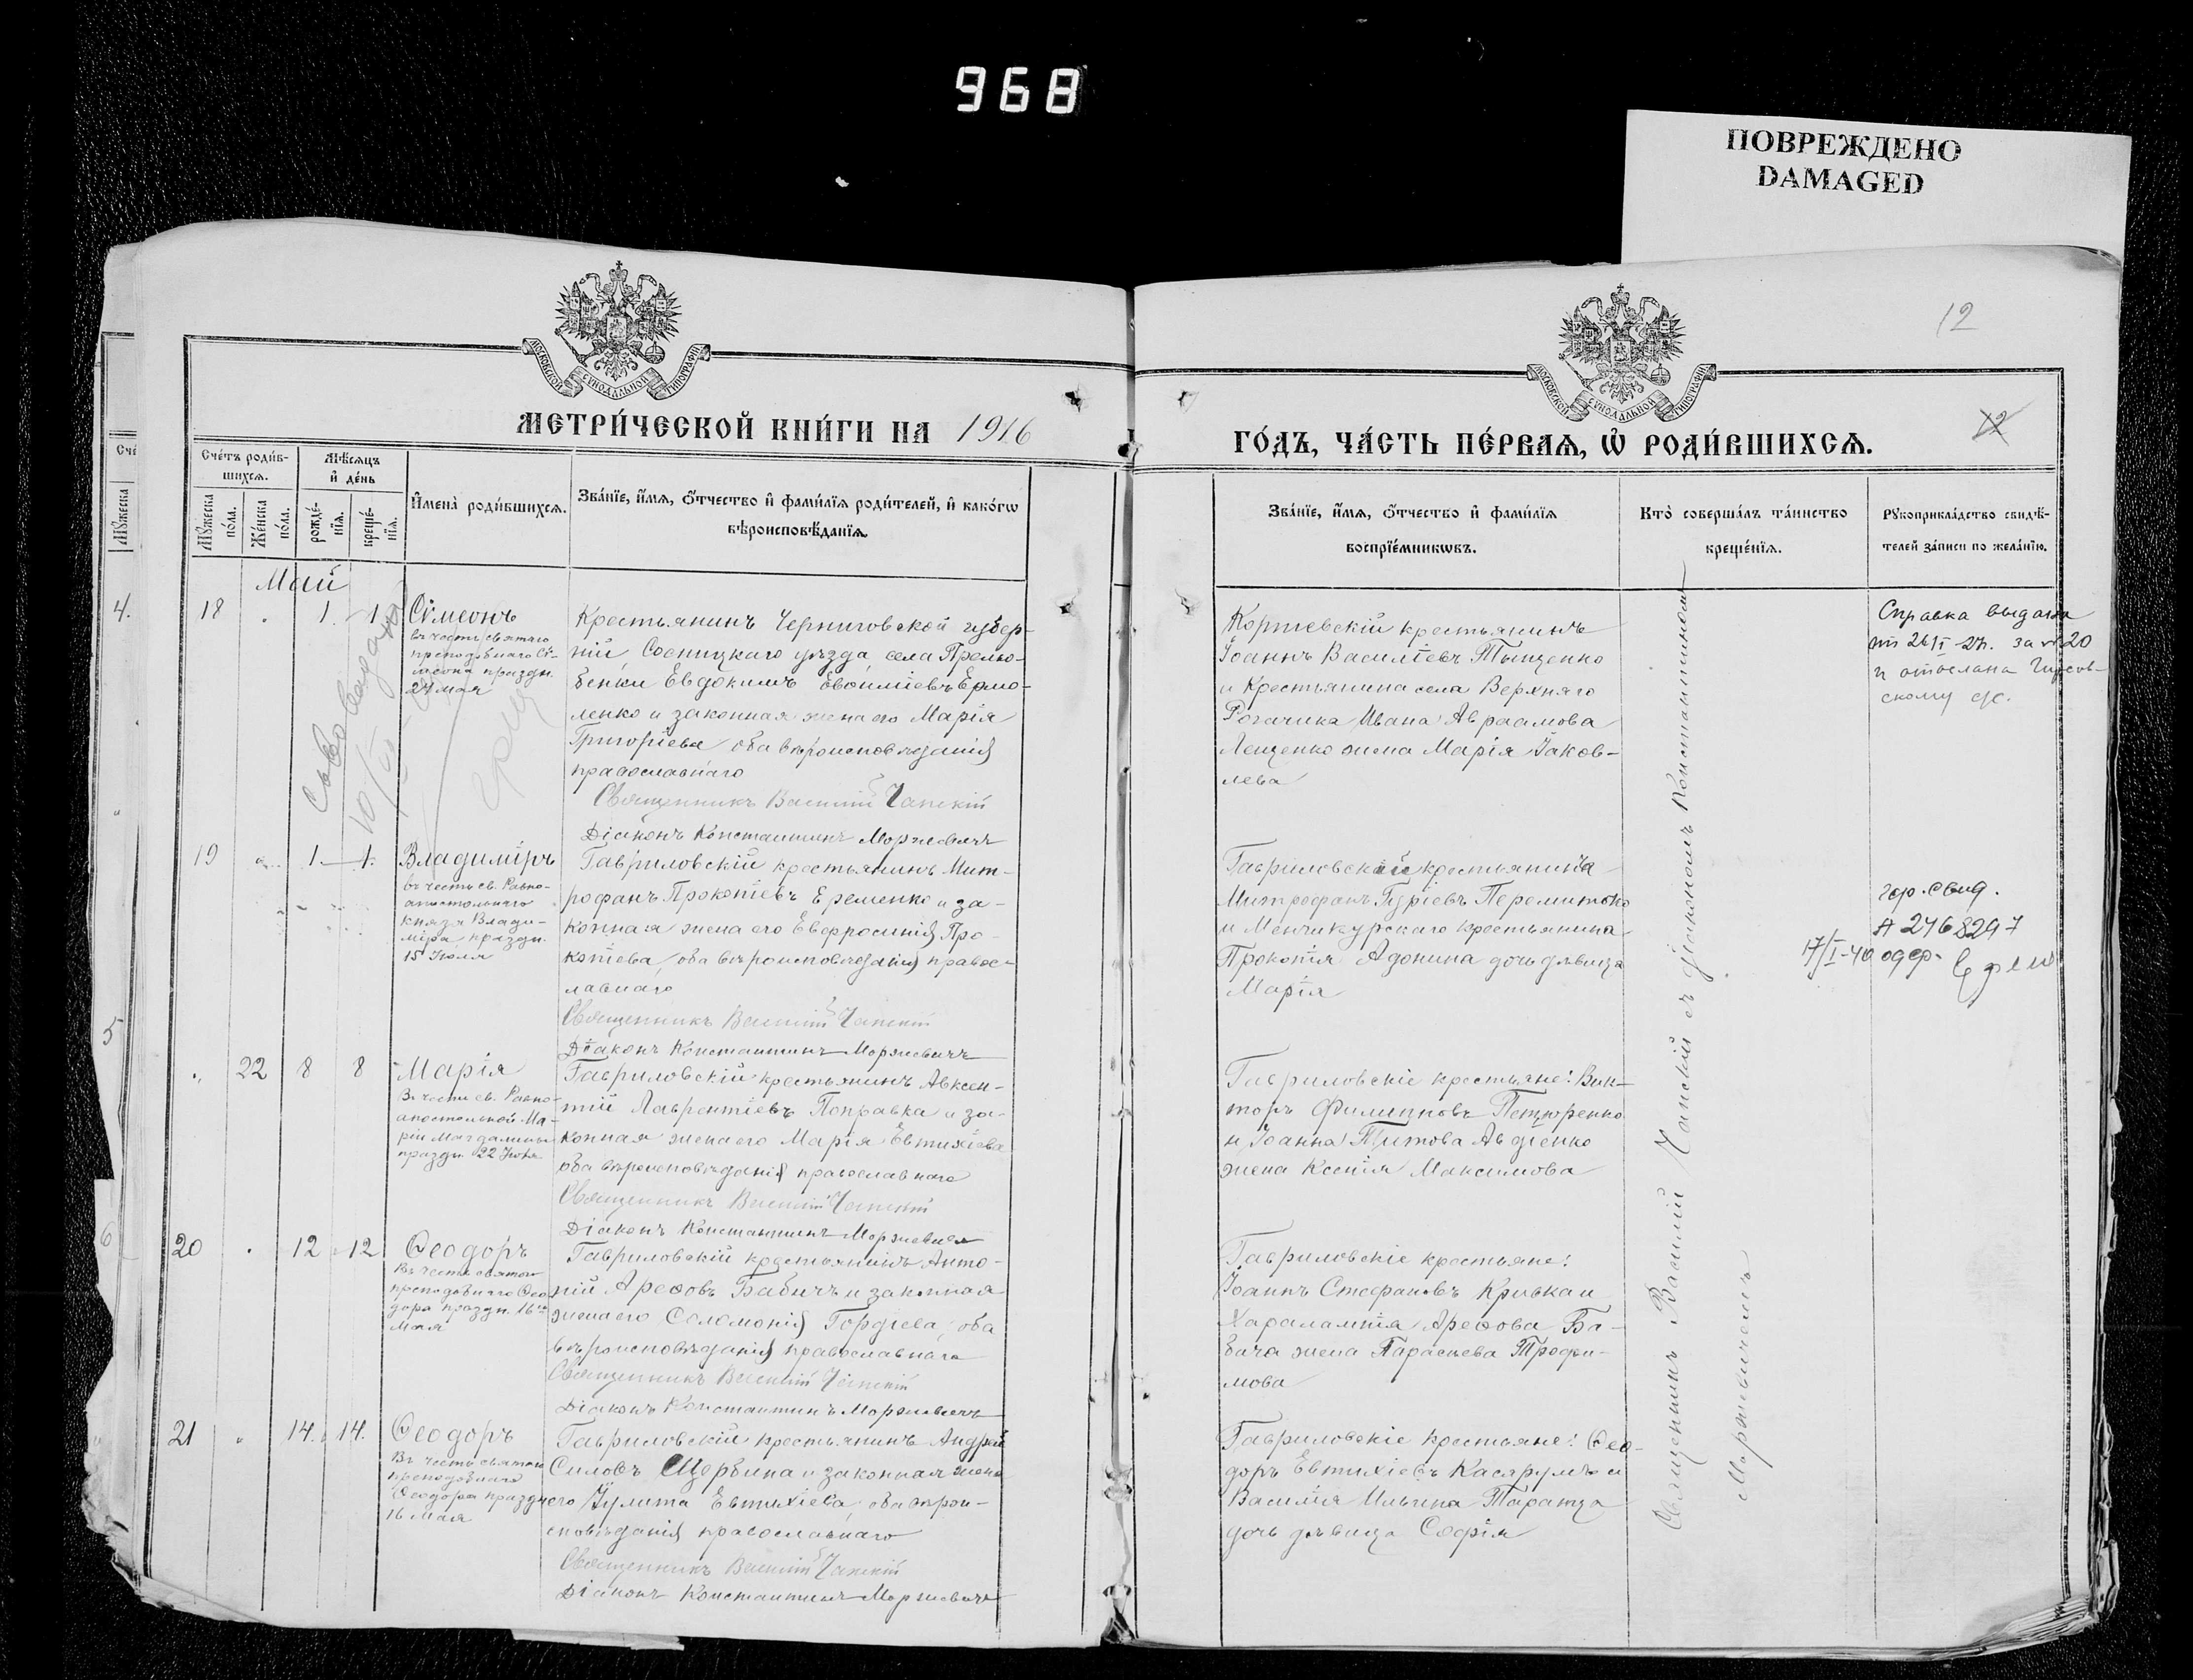 968
ПОВРЕЖДЕНО
DAMAGED
МОСКОВСКОЙ СѴНОДАЛЬНОЙ ТИПОГРАФІИ
МОСКОВСКОЙ СѴНОДАЛЬНОЙ ТИПОГРАФІИ
12
12
МЕТРИ́ЧЕСКОЙ КНИ́ГИ НА 1916
ГО́ДЪ, ЧА́СТЬ ПЕ́РВАЯ, Ѡ РОДИ́ВШИХСѦ.
Сче́тъ роди́вшихсѧ.
Мꙋ́жеска по́ла.
Же́нска по́ла.
Мѣ́сѧцъ и҆ де́нь
рожде́нїѧ.
креще́нїѧ.
И҆мена̀ роди́вшихсѧ.
Зва́нїе, и҆́мѧ, ѻ҆́тчество и҆ фами́лїѧ роди́телей, и҆ како́гѡ
вѣроисповѣ́данїѧ.
Зва́нїе, и҆́мѧ, ѻ҆́тчество и҆ фами́лїѧ
воспрїе́мникѡвъ.
Кто̀ соверша́лъ та́инство
креще́нїѧ.
Рꙋкоприкла́дство свидѣ́-
телей за́писи по жела́нїю.
Май
18 " 1. 1.
Сѵмеонъ
въ честь святаго
преподобнаго Сѵ-
меона праздн.
24 мая
Крестьянинъ Черниговской губер-
ніи, Сосницкаго уѣзда, села Прелю-
бенки Евдокимъ Евѳиміевъ Ермо-
ленко и законная жена его Марія
Григоріева оба вѣроисповѣданія
православнаго
Священникъ Василій Чапскій
Діаконъ Константинъ Моржевичъ
крестьянинъ
Іоаннъ Василіевъ Тыщенко
и Крестьянина села Верхняго
Рогачика Ивана Авраамова
Лещенко жена Марія Іаков-
лева
Справка выдана
за № 20
и отослана
скому с/с.
19 " 1. 1.
Владиміръ
въ честь св. Равно-
апостольнаго
князя Влади-
міра праздн.
15 Іюля
Гавриловскій крестьянинъ Мит-
рофанъ Прокопіевъ Еременко и за-
конная жена его Евфросинія Про-
копіева, оба вѣроисповѣданія правос-
лавнаго
Священникъ Василій Чапскій
Діаконъ Константинъ Моржевичъ
Митрофанъ Гуріевъ
и Менчикурскаго крестьянина
Прокопія Адонина дочь дѣвица
Марія
гер. свид.
А 2468297
17/I-40
" 22 8 8
Марія
Въ честь св. Равно-
апостольной Ма-
ріи Магдалины
праздн. 22 Іюля
Гавриловскій крестьянинъ Авксен-
тій Лаврентіевъ Поправка и за-
конная жена его Марія Евтихіева
оба вѣроисповѣданія православнаго
Священникъ Василій Чапскій
Діаконъ Константинъ Моржевичъ
Гавриловскіе крестьяне: Вик-
торъ Филипповъ Петюренко
и Іоанна Титова Авдіенко
жена Ксенія Максимова
20 " 12 12
Ѳеодоръ
Въ честь святаго
преподобнаго Ѳео-
дора праздн. 16го
Мая
Гавриловскій крестьянинъ Анто-
ній Ареѳовъ Бабичъ и законная
жена его Соломонія Гордіева, оба
вѣроисповѣданія православнаго
Священникъ Василій Чапскій
Діаконъ Константинъ Моржевичъ
Гавриловскіе крестьяне:
Іоаннъ Стефановъ Кривка и
Харалампія Ареѳова Ба-
бича жена Параскева Трофи-
мова
21 " 14. 14.
Ѳеодоръ
Въ честь святаго
преподобнаго
Ѳеодора праздн.
16 Мая
Гавриловскій крестьянинъ Андрей
Силовъ Щербина и законная жена
его Іулита Евтихіева, оба вѣрои-
сповѣданія православнаго
Священникъ Василій Чапскій
Діаконъ Константинъ Моржевичъ
Гавриловскіе крестьяне: Ѳео-
доръ Евтихіевъ и
Василія Ильина Таратца
дочь дѣвица Софія
Священникъ Василій Чапскій съ діакономъ Константиномъ
Моржевичемъ